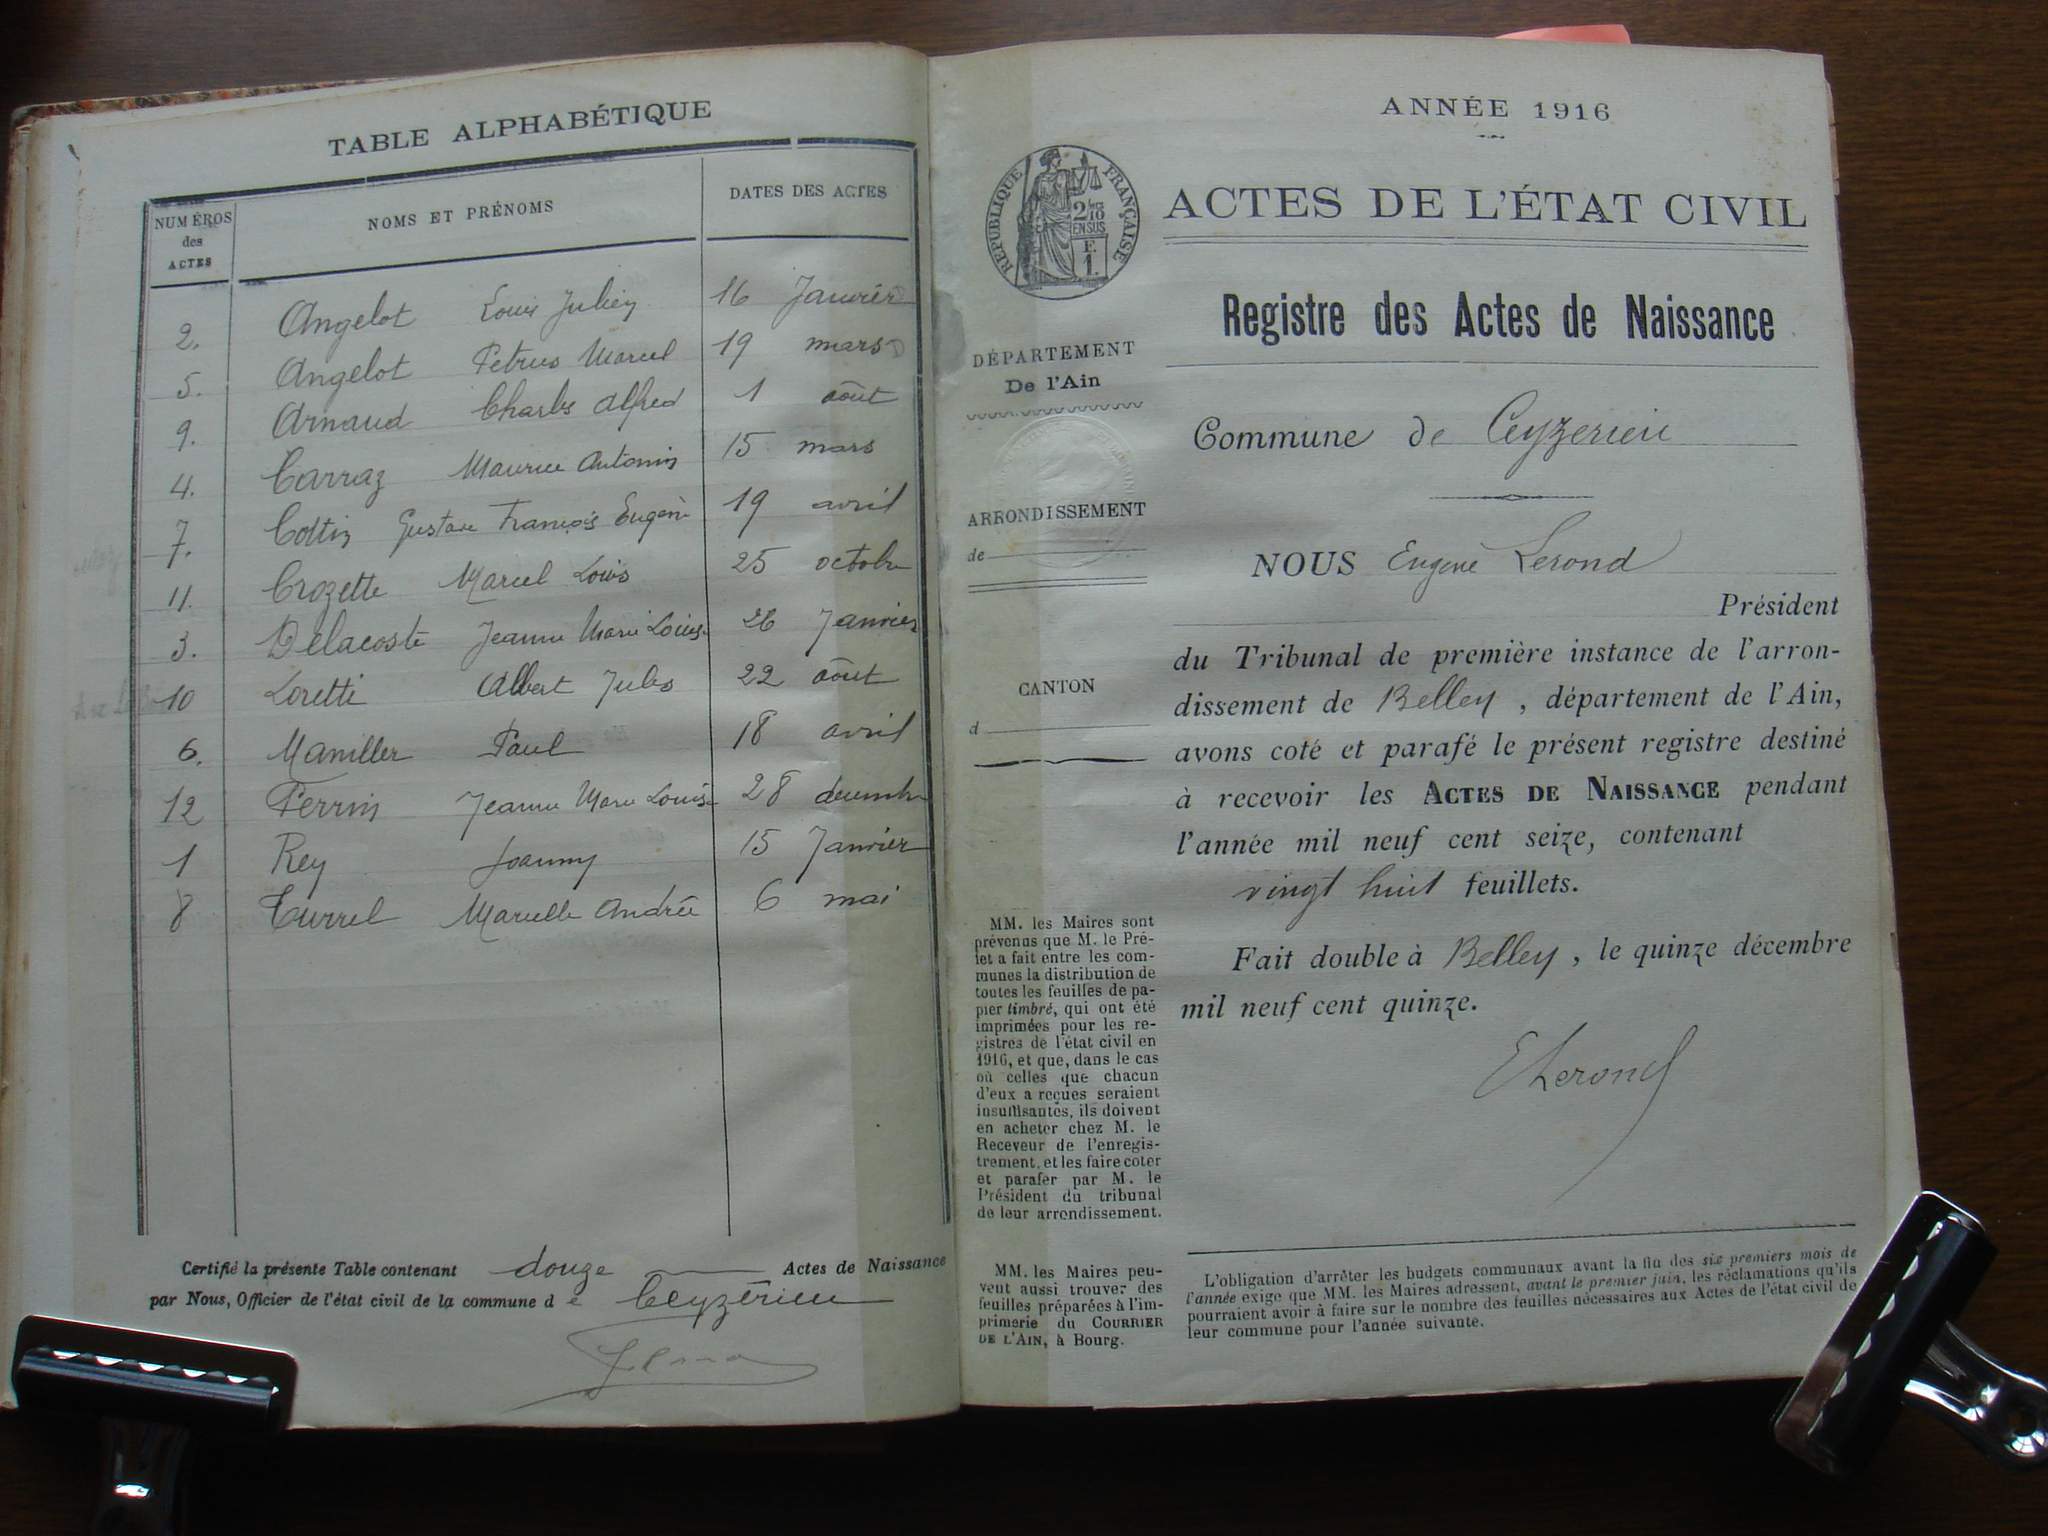 TABLE ALPHABÉTIQUE
NUMÉROS
des
ACTES
NOMS ET PRÉNOMS
DATES DES ACTES
2. Angelot Louis Julien 16 Janvier
5. Angelot Petrus Marcel 19 mars
9. Arnaud Charles Alfred 1 août
4. Carraz Maurice Antonin 15 mars
7. Cottin Gustave François Eugène 19 avril
11. Crozette Marcel Louis 25 octobre
3. Delacoste Jeanne Marie Louise 26 Janvier
10 Loretti Albert Jules 22 août
6. Maniller Paul 18 avril
12 Perrin Jeanne Marie Louise 28 decembre
1 Rey Joanny 15 Janvier
8 Turrel Marcelle Andrée 6 mai
Certifié la présente Table contenant douze Actes de Naissance
par Nous, Officier de l'état civil de la commune de Ceyzérieu
ANNÉE 1916
RÉPUBLIQUE FRANÇAISE
2/10
EN SUS
F.
1.
ACTES DE L'ÉTAT CIVIL
Registre des Actes de Naissance
DÉPARTEMENT
De l'Ain
Commune de Ceyzerieu
ARRONDISSEMENT
de
CANTON
d
NOUS Eugène Lerond
Président
du Tribunal de première instance de l'arron-
dissement de Belley, département de l'Ain,
avons coté et parafé le présent registre destiné
à recevoir les ACTES DE NAISSANCE pendant
l'année mil neuf cent seize, contenant
vingt huit feuillets.
Fait double à Belley, le quinze décembre
mil neuf cent quinze.
ELerond
MM. les Maires sont
prévenus que M. le Pré-
fet a fait entre les com-
munes la distribution de
toutes les feuilles de pa-
pier timbré, qui ont été
imprimées pour les re-
gistres de l'état civil en
1916, et que, dans le cas
où celles que chacun
d'eux a reçues seraient
insuffisantes, ils doivent
en acheter chez M. le
Receveur de l'enregis-
trement, et les faire coter
et parafer par M. le
Président du tribunal
de leur arrondissement.
MM. les Maires peu-
vent aussi trouver des
feuilles préparées à l'im-
primerie du COURRIER
DE L'AIN, à Bourg.
L'obligation d'arrêter les budgets communaux avant la fin des six premiers mois de
l'année exige que MM. les Maires adressent, avant le premier juin, les réclamations qu'ils
pourraient avoir à faire sur le nombre des feuilles nécessaires aux Actes de l'état civil de
leur commune pour l'année suivante.